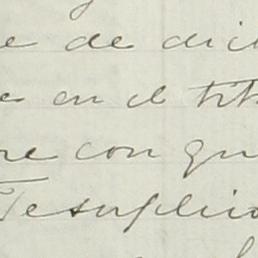 e de dich
e en el tit
re con qu
Te suplico